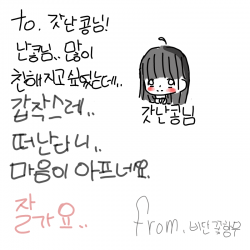 to. 갓난콩님!
난콩님.. 많이
친해지고 싶었는데..
갑작스레..
떠난다니..
마음이 아프네요.
잘
가요..
갓난콩님
from. 비단꽃향무